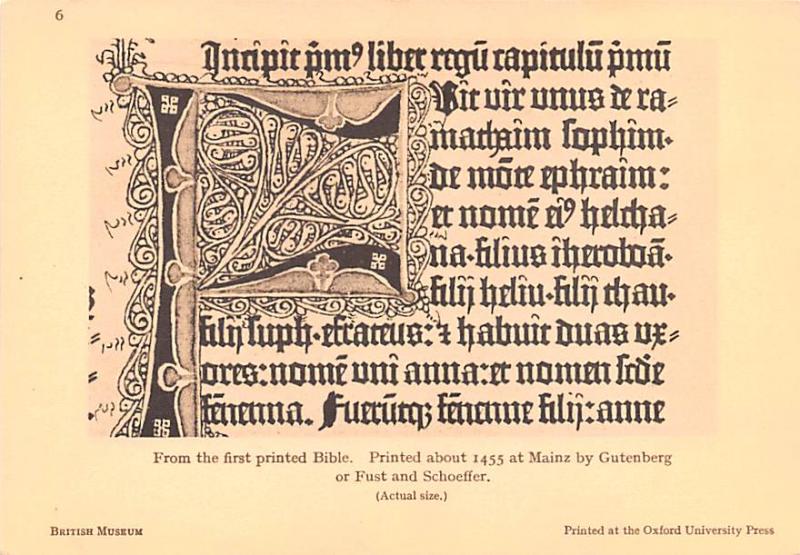 6
Incipit p̄mꝰ liber regū capitulū p̄mū
FVit vir unus de ra=
mathaim sophim·
de mōte ephraim:
et nomē eiꝰ helcha=
na·filius iheroboā·
filij heliu·filij thau·
filij suph·effrateus:⁊ habuit duas vx=
ores:nomē vni anna:et nomen scd̄e
fenenna. Fuerūtqꝫ fenenne filij:anne
From the first printed Bible. Printed about 1455 at Mainz by Gutenberg
or Fust and Schoeffer.
(Actual size.)
British Museum
Printed at the Oxford University Press